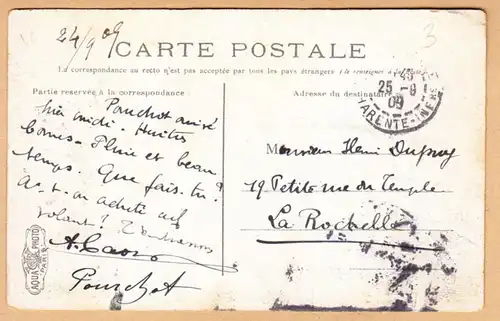 24/9 09
3
CARTE POSTALE
La correspondance au recto n'est pas acceptée par tous les pays étrangers (Se renseigner à la Poste)
Partie réservée à la correspondance :
Adresse du destinataire
25 - 9
09
ARENTE-INFRE
Ponchot arrivé
midi. Huitres
Pluie et beau
temps. Que fais-tu?
A-t-on acheté un
volant?
A. Caor
Pourchot
Monsieur Henri Dupuy
19 Petite rue du Temple
La Rochelle
AQUA PHOTO
PARIS